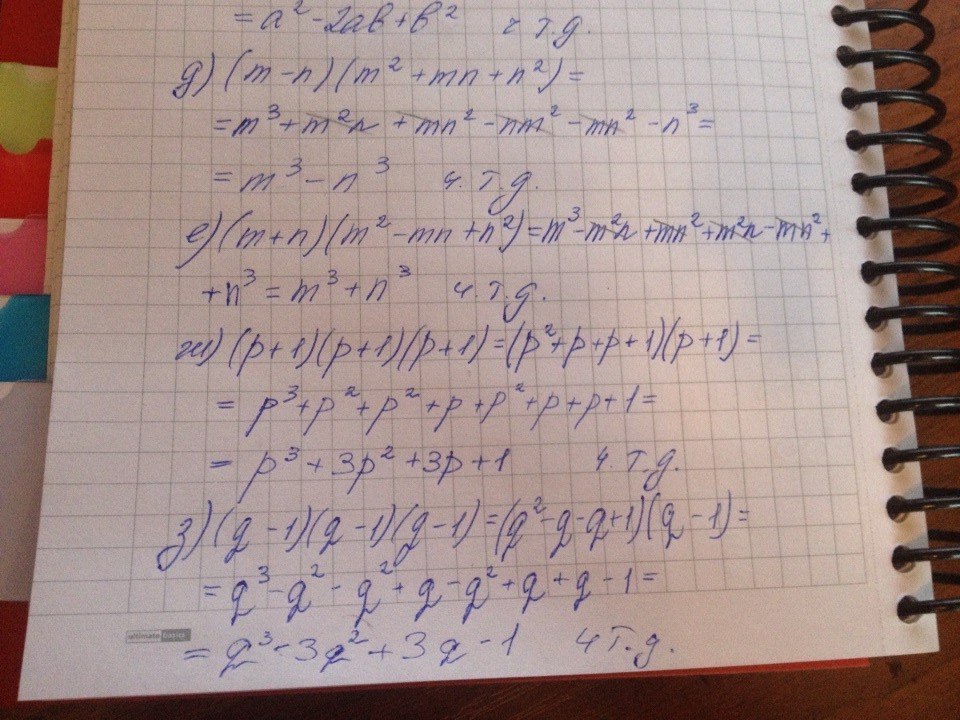 = a² - 2ab + b² ч т.д.
д) (m - n)(m² + mn + n²) =
= m³ + m²n + mn² - nm² - mn² - n³ =
= m³ - n³ ч.т.д.
е) (m + n)(m² - mn + n²) = m³ - m²n + mn² + m²n - mn² +
+ n³ = m³ + n³ ч.т.д.
ж) (p + 1)(p + 1)(p + 1) = (p² + p + p + 1)(p + 1) =
= p³ + p² + p² + p + p² + p + p + 1 =
= p³ + 3p² + 3p + 1 ч.т.д.
з) (q - 1)(q - 1)(q - 1) = (q² - q - q + 1)(q - 1) =
= q³ - q² - q² + q - q² + q + q - 1 =
= q³ - 3q² + 3q - 1 ч т.д.
ultimate basics